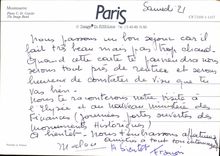 Montmartre
Paris
Samedi 21
Nous passons un bon séjour car il
fait très beau mais pas trop chaud.
Quand cette carte te parviendra nous
serons sur le point de rentrer et serons
heureux de constater de vive que tu
vas bien.
Nous te raconterons notre visite à
l'Elysée et au nouveau ministère des
Finances (journées portes ouvertes des
monuments historiques)
A bientôt. Nous t'embrassons affectueusement
A bientôt